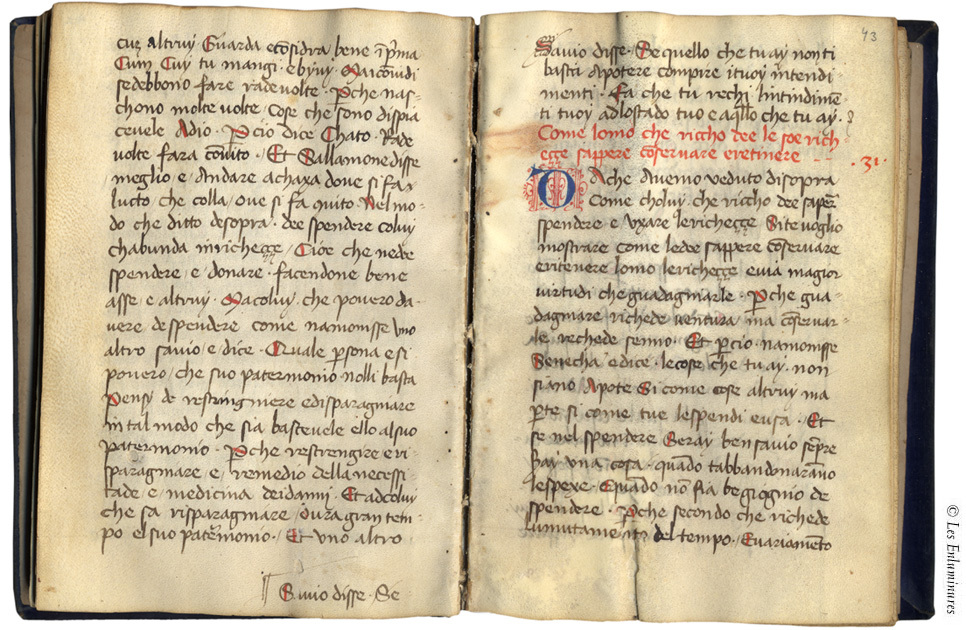 cur altruy Guarda ecõsidra bene ĩp̃ma
Cum Cuy tu mangi · e bivi · Ma icõvidi
se debbono fare rade volte · Pche nas-
chono molte volte · Cose che sono dispia
cevele Adio · Pcio dice Chato · Rade
volte fara cõvito · Et Sallamone disse
meglio e Andare achaxa dove si fa
lucto che colla, ove si fa quito · Nel mo-
do che ditto desopra · dee spendere coluy
chabunda inrichecçe · Cioe che nede
spendere e donare · facendone bene
asse e altruy · Macoluy che povero da-
vere despendere come namonisse uno
altro savio e dice · Quale psona e si
povero, che suo patermonio nolli basta
Pensi de restringniere edisparagniare
in tal modo che sia bastevele ello alsuo
patermonio · Pche restrengire e ri
sparagniare e remedio della necessi
tade e medicina deidanni · Et adcoluy
che sa risparagniare, dura gran tem-
po el suo patermonio · Et uno altro
Savio disse · Se
43
Savio disse · Se quello che tu ay non ti
basta Apotere compire ituoy intendi
menti · Fa che tu rechi lintindimẽ
ti tuoy adlostado tuo e aqllo che tu ay ·
Come lomo che riccho dee le soe rich
ecçe sappere cõservare eretinere
· 31 ·
DA che Avemo veduto disopra
Come choluy che riccho dee saper
spendere e uxare le richecçe Si te voglio
mostrare come lede sappere cõservare
eritenere lomo le richecçe e via magior
virtudi che guadagniarle · Pche gua-
dagniare richede ventura, ma cõservar-
le rechede senno · Et pcio namonisse
Senecha e dice · le cose che tu ay non
siano Apote Si come cose altruy ma
p te si come tue le spendi e usa · Et
se nel spendere Seray ben savio sẽpre
hay una cosa · quãdo tabbandonarãno
lespexe · Equãdo nõ fia begiognio de
spendere · Pche secondo che richede
lumutamento del tempo · E variamẽto
© Les Enluminures